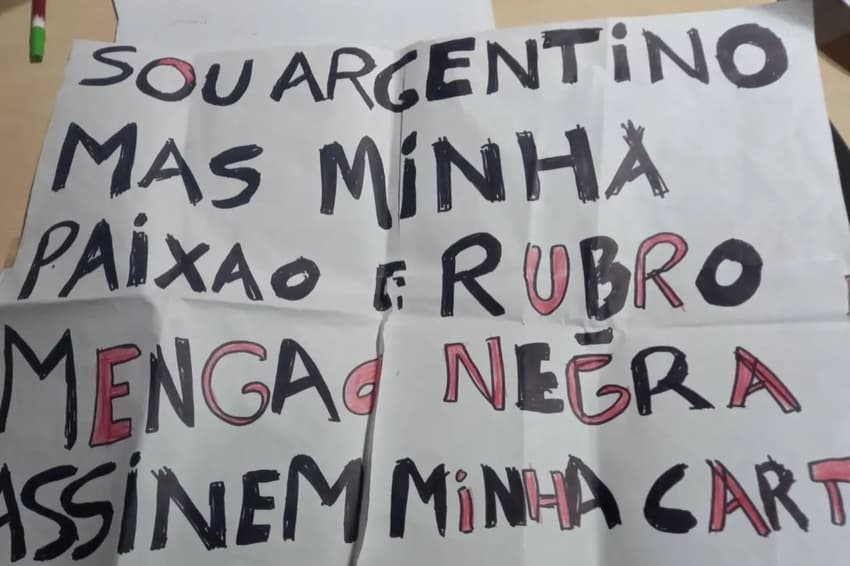 SOU ARGENTiNO
MAS MiNHA
PAiXAO E RUBRO
MENGAO NEGRA
ASSiNEM MiNHA CART